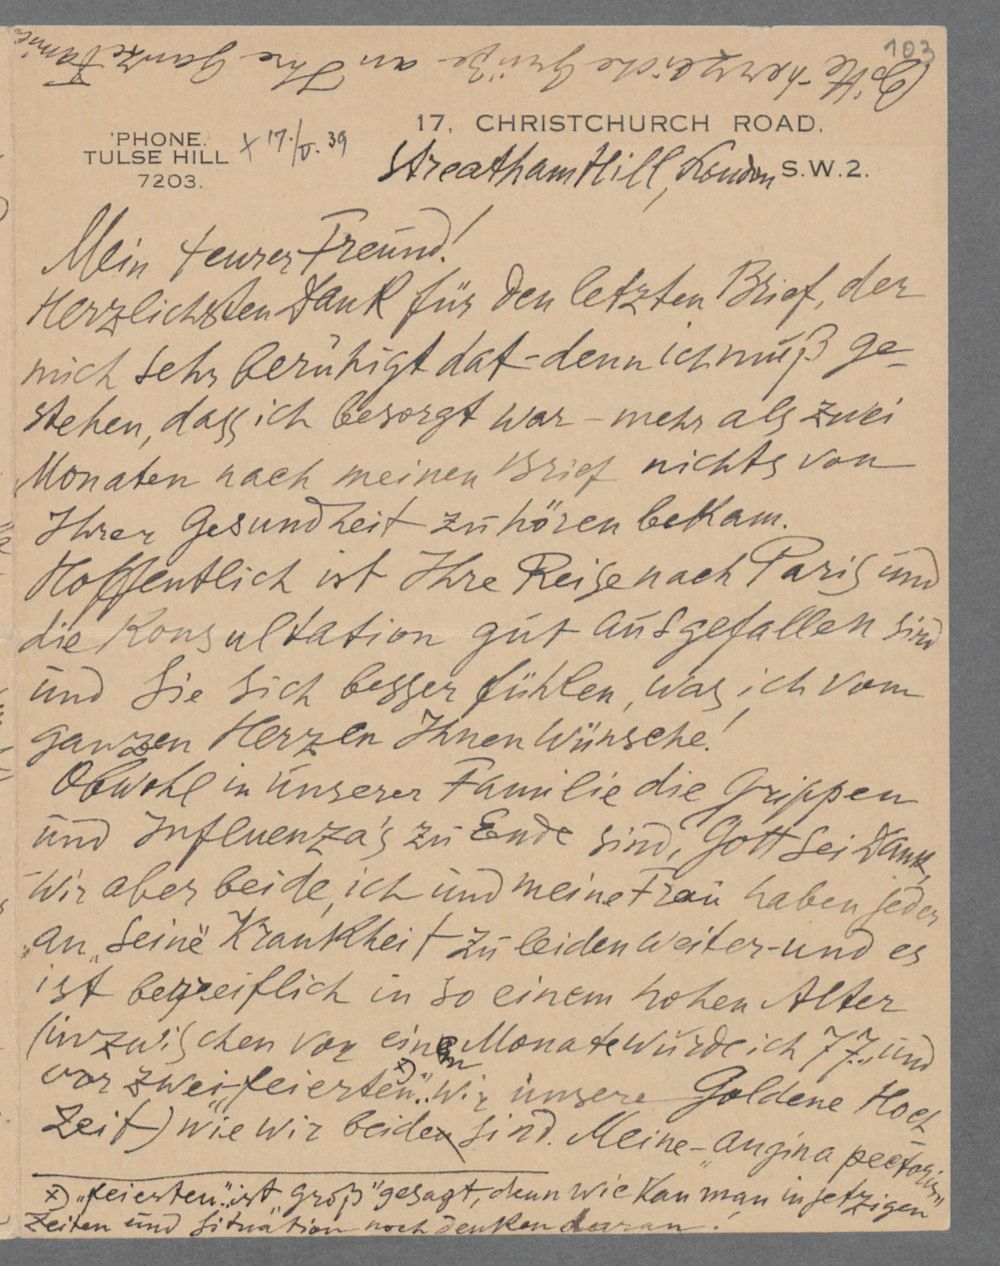 103
Bitte herzliche Grüße an Ihre Ganze Familie
'PHONE.
TULSE HILL
7203.
x 17./V. 39
17, CHRISTCHURCH ROAD,
Streatham Hill, London S.W.2.
Mein teurer Freund!
Herzlichsten Dank für den letzten Brief, der
mich sehr berühigt dat - denn ich muß ge-
stehen, dass ich besorgt war - mehr als zwei
Monaten nach meinen Brief nichts von
Ihrer Gesundheit zu hören bekam.
Hoffentlich ist Ihre Reise nach Paris und
die Konsultation gut ausgefallen sind
und Sie sich besser fühlen, was ich vom
ganzen Herzen Ihnen wünsche!
Obwohl in unserer Familie die Grippen
und Influenza's zu Ende sind, Gott sei Dank,
wir aber beide, ich und meine Frau haben jeder
an „seine" Krankheit zu leiden weiter - und es
ist begreiflich in so einem hohen Alter
(inzwischen vor einen Monate wurde ich 77., und
vor zwei „feierten" x) wir unsere Goldene Hoch
zeit) wie wir beiden sind. Meine - „angina pectoris"
x) „feierten" ist „groß" gesagt, denn wie kan man in jetzigen
Zeiten und Situation noch denken daran!